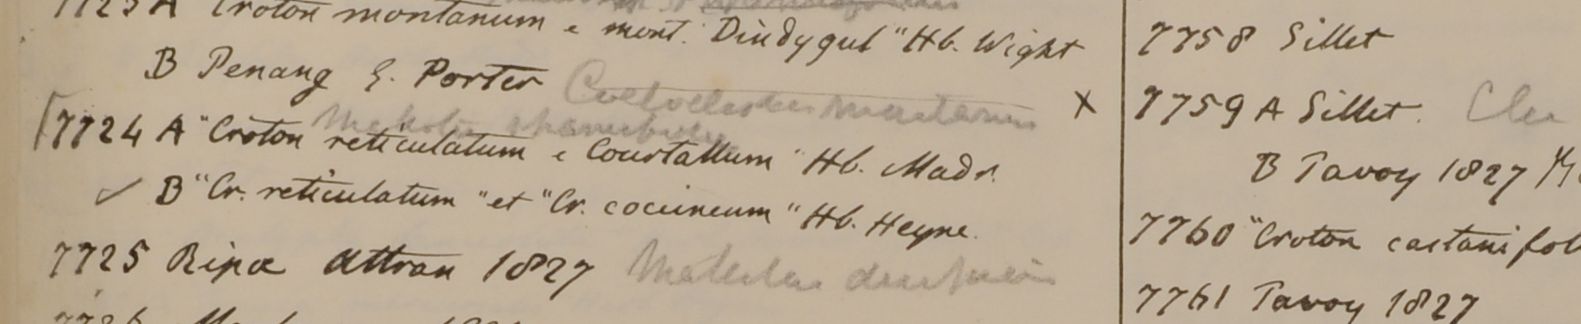 7723 A Croton montanum e mont. Dindygul" Hb. Wight
B Penang G. Porter
7724 A "Croton reticulatum e Courtallum" Hb. Madr.
✓ B "Cr. reticulatum" et "Cr. coccineum" Hb. Heyne.
7725 Ripa Attran 1827
7758 Sillet
x 7759 A Sillet.
B Tavoy 1827
7760 "Croton castanifol
7761 Tavoy 1827